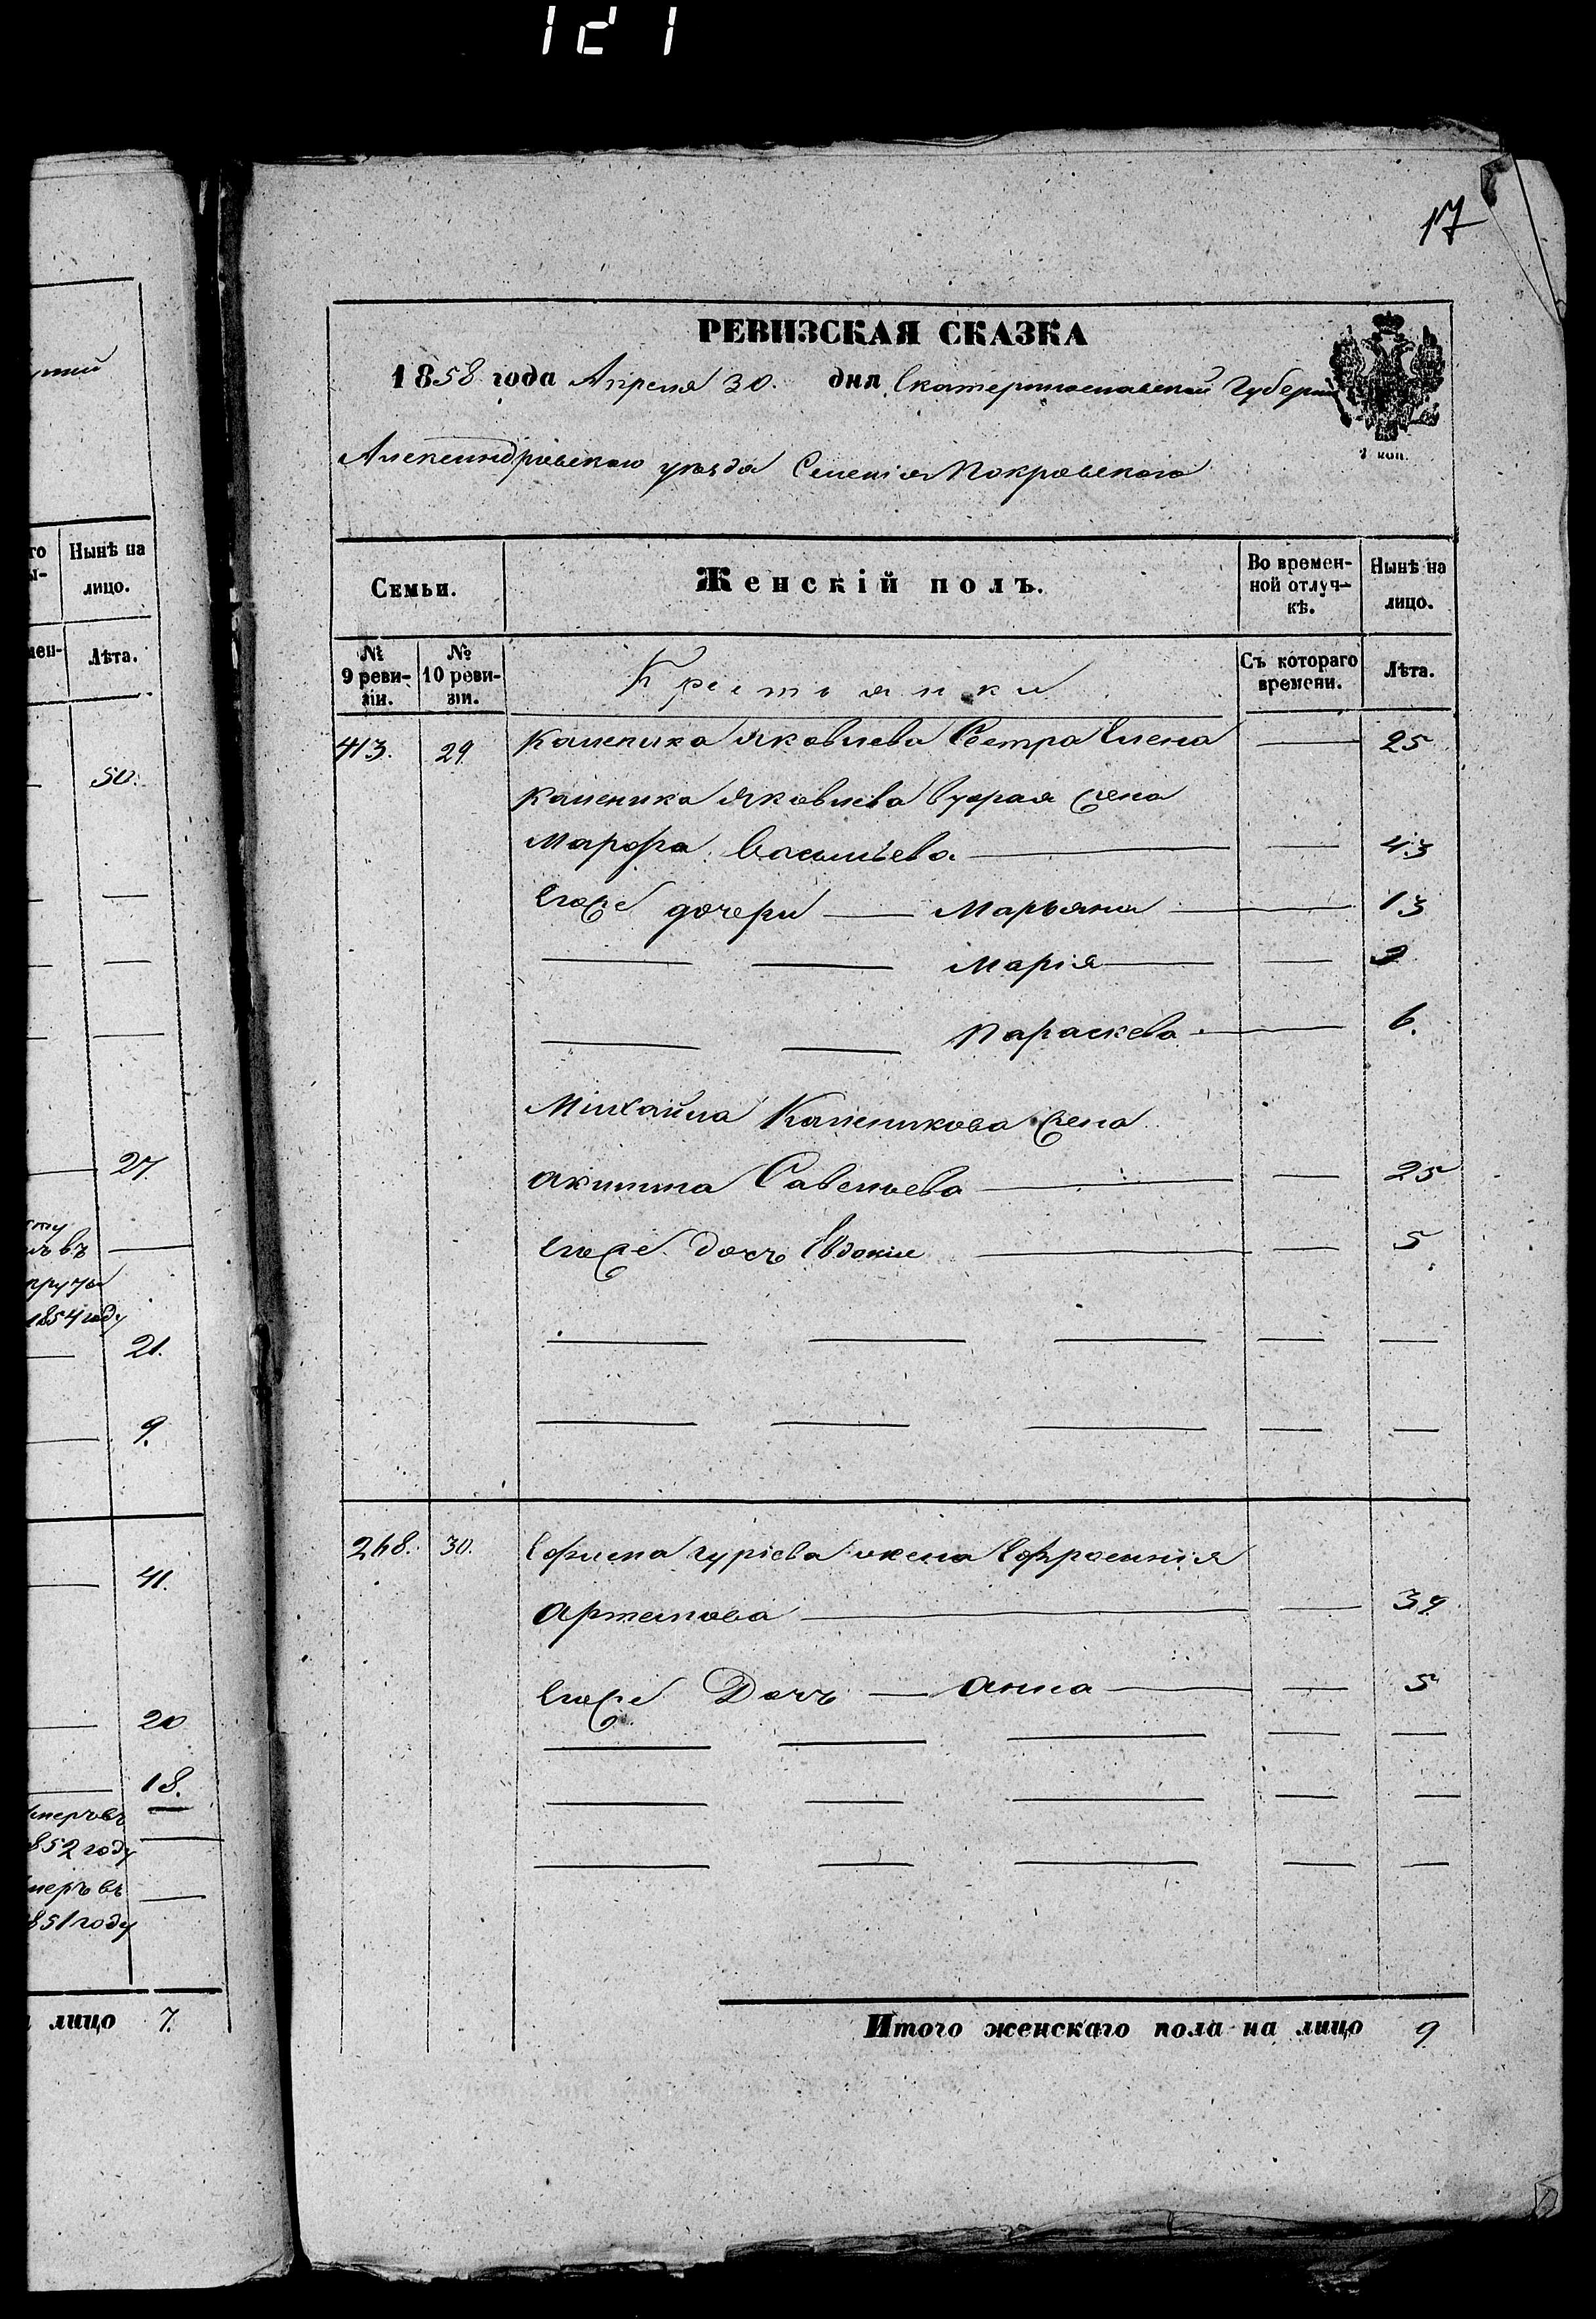 121
17
РЕВИЗСКАЯ СКАЗКА
1858 года Апреля 30. дня Екатеринославской Губерніи
Александровского уезда Селенія Покровского
2 коп.
Семьи.
Женскій полъ.
Во времен-
ной отлуч-
кѣ.
Нынѣ на
лицо.
№
9 реви-
зіи.
№
10 реви-
зіи.
Крестьянки
Съ котораго
времени.
Лѣта.
413. 29. Каленика Яковлева Сестра Елена — 25
Каленика Яковлева вторая жена
Марфа Васильева — 43
Егоже дочери — Марьяна — 13
Марія — 9
Параскева — 6.
Михайла Каленикова жена
Акилина Савельева — 25
Егоже дочь Евдокія — 5
268. 30. Ефима Гуріева жена Ефросинія
Артемова — 39
Егоже Дочь — Анна — 5
Итого женскаго пола на лицо 9
го
Нынѣ на
лицо.
мен-
Лѣта.
50.
27.
въ
1854 году
21.
9.
41.
20
18.
умеръ въ
1852 году
умеръ въ
1851 году
лицо 7.